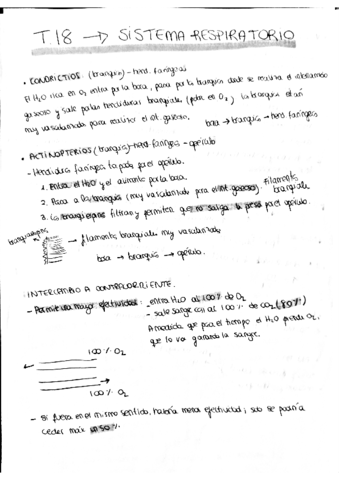 T.18 → SISTEMA RESPIRATORIO
• CONDRICTIOS. (branquias) - hend. faríngeas
El H2O rica en O2 entra por la boca, pasa por la branquia donde se realiza el intercambio
gaseoso y sale por las hendiduras branquiales (pobre en O2) la branquia están
muy vascularizada para realizar el int. gaseoso. boca → branquia → hend. faríngea
• ACTINOPTERIOS (branquias) - hend. faríngea - opérculo
- Hendidura faríngea tapada por el opérculo.
1. Entra el H2O y el alimento por la boca.
2. Pasa a las branquias (muy vascularizada para el int. gaseoso). filamentos branquiales
3. Las branquiespinas filtran y permiten que no salga la presa por el opérculo.
branquiespinas
→ filamentos branquiales muy vascularizado
boca → branquia → opérculo.
INTERCAMBIO A CONTRACORRIENTE.
- Permite una mayor efectividad: - entra H2O al 100% de O2
- sale sangre con al 100% de CO2 (80%)
A medida que pasa el tiempo el H2O pierde O2,
que lo va ganando la sangre.
100% O2
100% O2
- Si fuera en el mismo sentido, habría menos efectividad, solo se podría
ceder max un 50%.